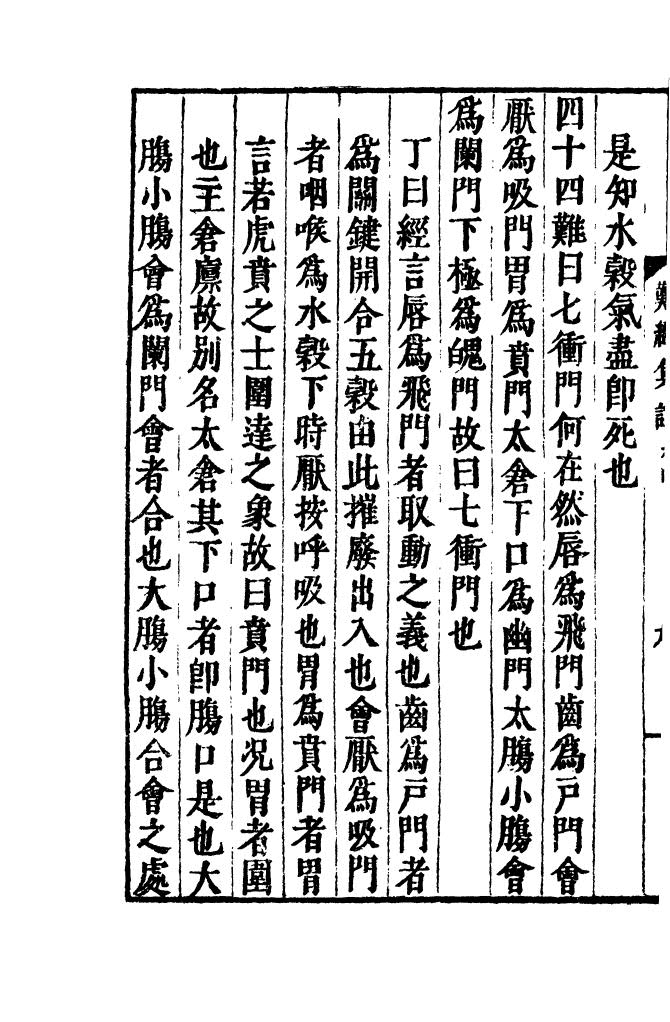 是知水穀氣盡卽死也
四十四難曰七衝門何在然唇爲飛門齒爲戸門會
厭爲吸門胃爲賁門太倉下口爲幽門大腸小腸會
爲闌門下極爲魄門故曰七衝門也
丁曰經言唇爲飛門者取動之義也齒爲戸門者
爲關鍵開合五穀由此摧廢出入也會厭爲吸門
者咽喉爲水穀下時厭按呼吸也胃爲賁門者胃
言若虎賁之士圍達之象故曰賁門也况胃者圍
也主倉廪故别名太倉其下口者卽腸口是也大
腸小腸會爲闌門會者合也大腸小腸合會之處